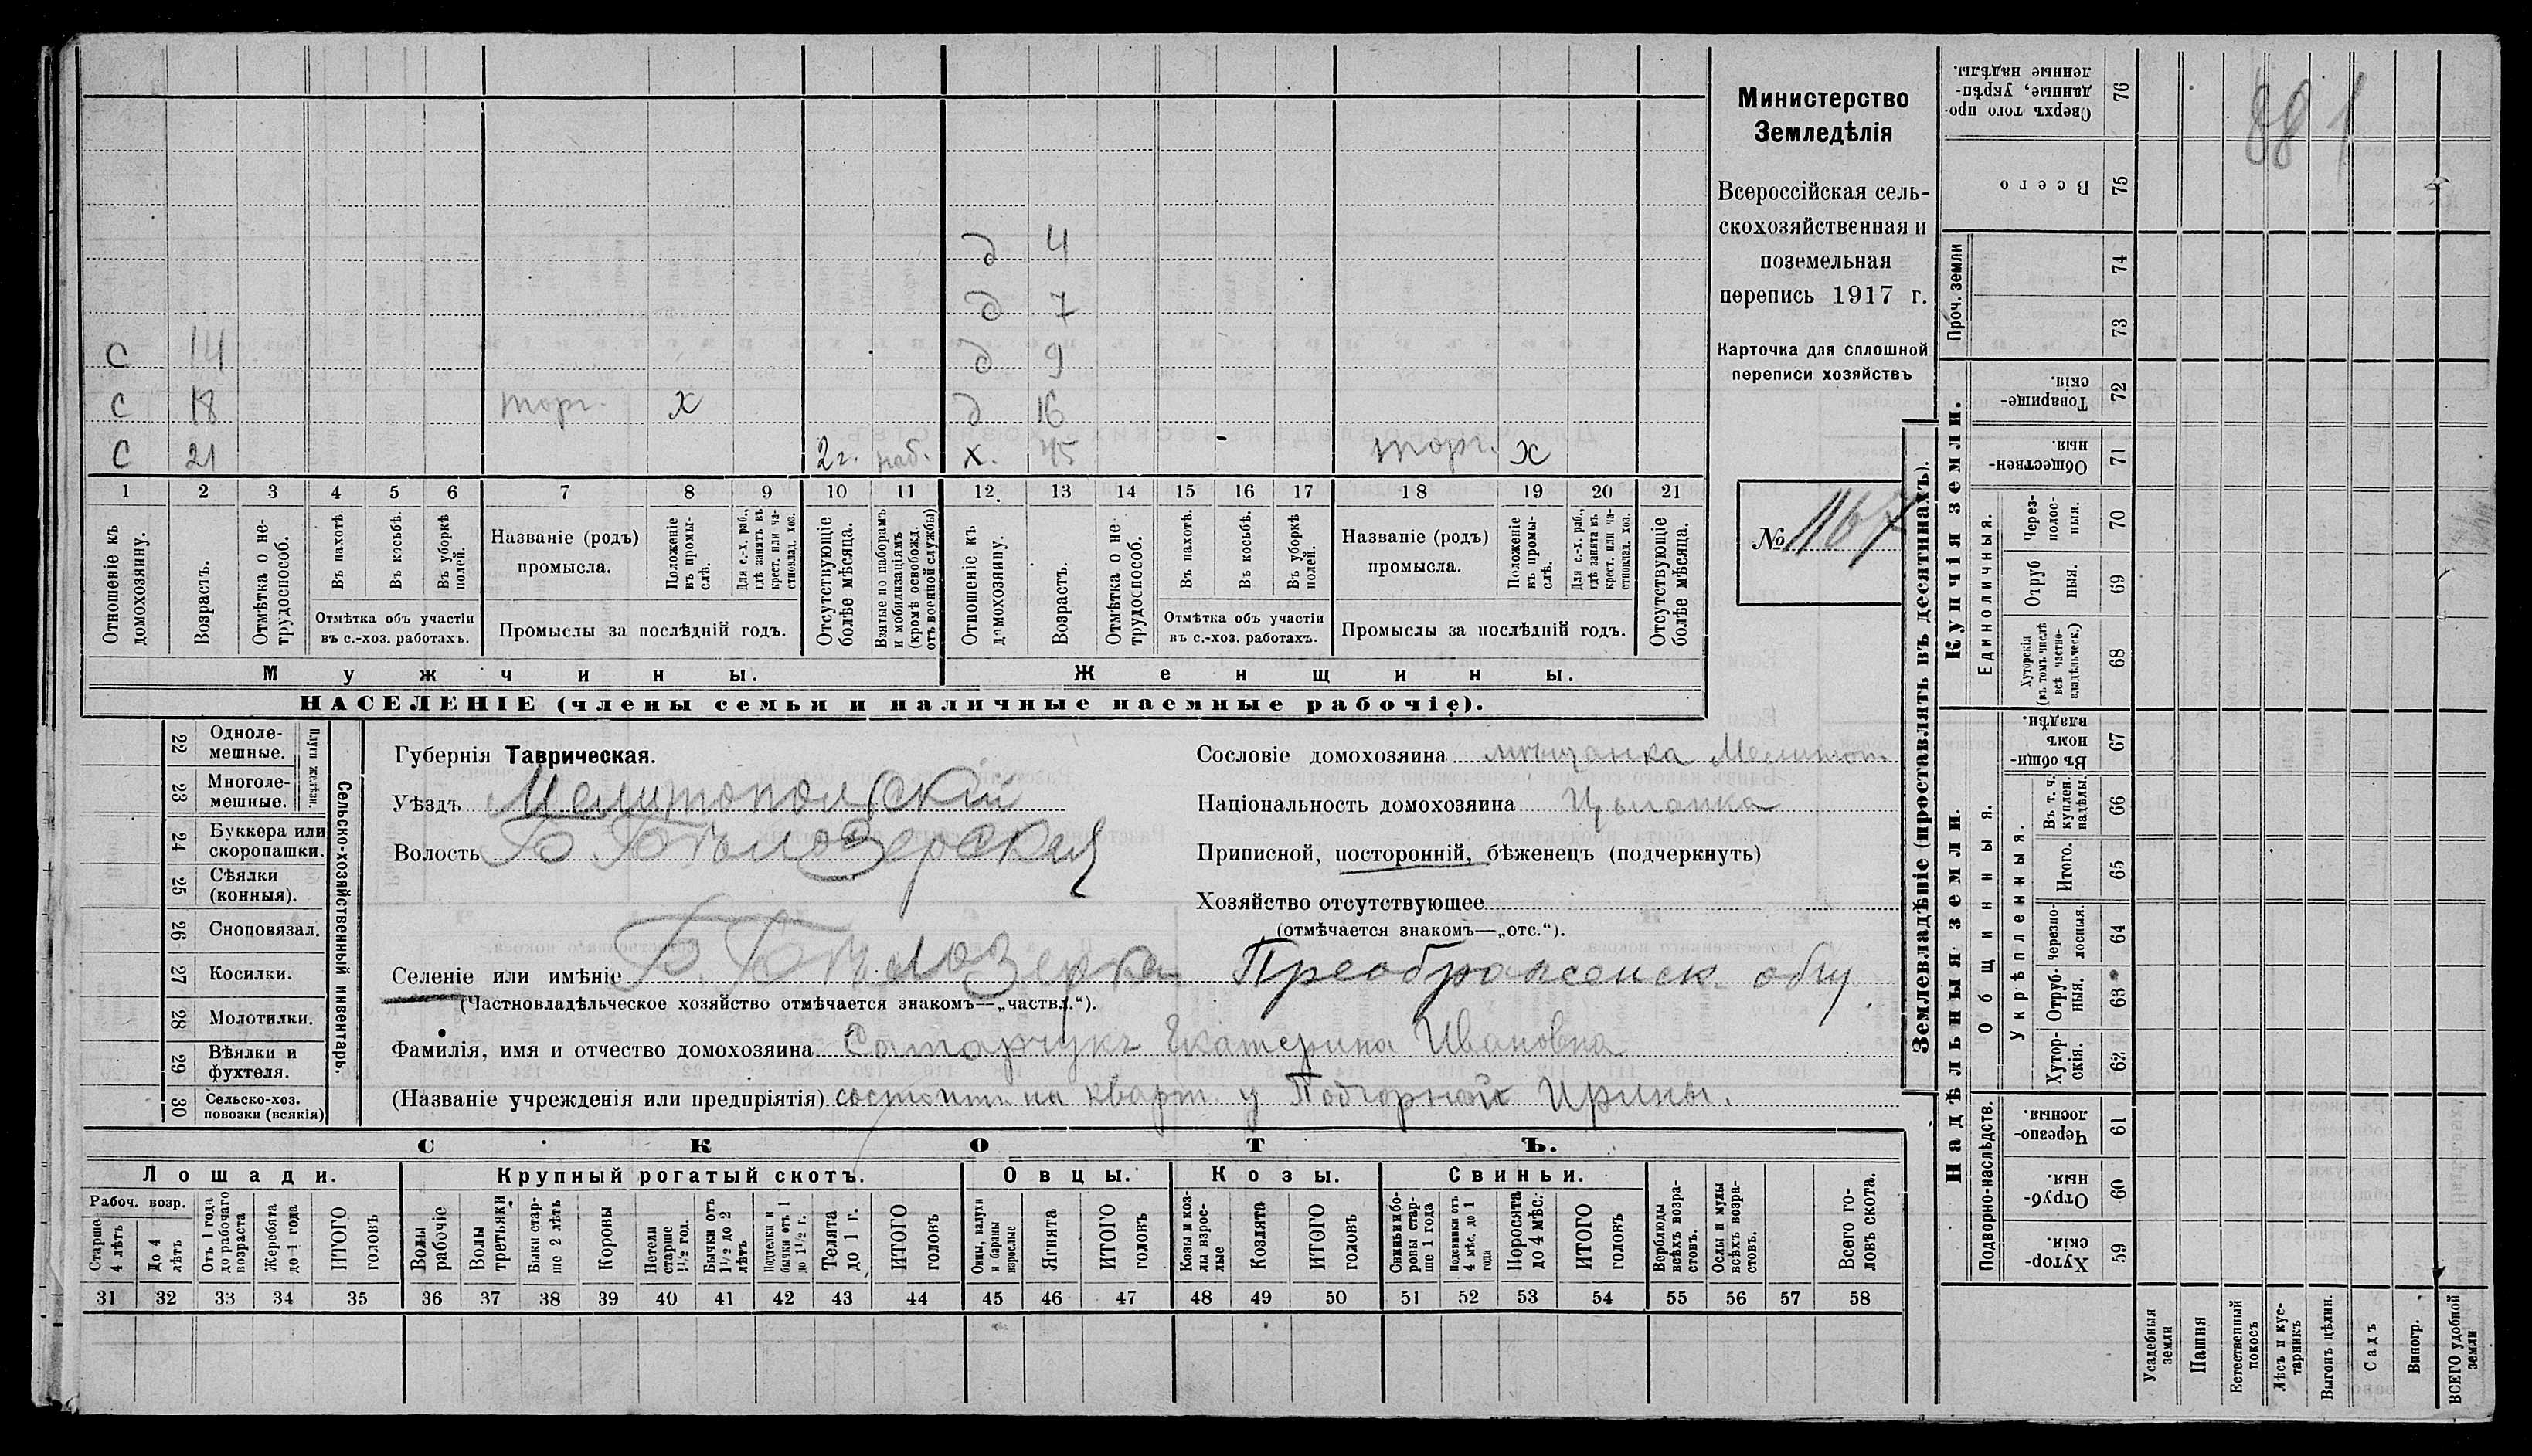 88 1
Министерство
Земледѣлія
Всероссійская сель-
скохозяйственная и
поземельная
перепись 1917 г.
Карточка для сплошной
переписи хозяйствъ
№ 1167
д 4
д 7
с 14 д 9
с 18 торг. х д 16
с 21 2 г. наб. х. 45 торг. х
1 2 3 4 5 6 7 8 9 10 11 12. 13 14 15 16 17 18 19 20 21
Отношеніе къ домохозяину.
Возрастъ.
Отмѣтка о не-трудоспособ.
Въ пахотѣ.
Въ косьбѣ.
Въ уборкѣ полей.
Отмѣтка объ участіи
въ с.-хоз. работахъ.
Названіе (родъ)
промысла.
Положеніе въ промы-слѣ.
Для с.-х. раб., гдѣ занятъ въ крест. или ча-стновлад. хоз.
Промыслы за послѣдній годъ.
Отсутствующіе болѣе мѣсяца.
Взятые по наборамъ и мобилизаціямъ (кромѣ освобожд. отъ военной службы)
Отношеніе къ домохозяину.
Возрастъ.
Отмѣтка о не трудоспособ.
Въ пахотѣ.
Въ косьбѣ.
Въ уборкѣ полей.
Отмѣтка объ участіи
въ с.-хоз. работахъ.
Названіе (родъ)
промысла.
Положеніе въ промы-слѣ.
Для с.-х. раб., гдѣ занята въ крест. или ча-стновлад. хоз.
Промыслы за послѣдній годъ.
Отсутствующіе болѣе мѣсяца.
Мужчины. Женщины.
НАСЕЛЕНІЕ (члены семьи и наличные наемные рабочіе).
22 Одноле-мешные.
23 Многоле-мешные.
Плуги желѣзн.
24 Буккера или скоропашки.
25 Сѣялки (конныя).
26 Сноповязал.
27 Косилки.
28 Молотилки.
29 Вѣялки и фухтеля.
30 Сельско-хоз. повозки (всякія)
Сельско-хозяйственный инвентарь.
Губернія Таврическая.
Уѣздъ Мелитопольскій
Волость Б Бѣлозерская
Селеніе или имѣніе Б. Бѣлозерка Преображенск. общ.
(Частновладѣльческое хозяйство отмѣчается знакомъ—„частвл.“).
Фамилія, имя и отчество домохозяина Сатарчукъ Екатерина Ивановна
(Названіе учрежденія или предпріятія) состоитъ на кварт. у Подгорной Ирины.
Сословіе домохозяина мѣщанка Мелитоп.
Національность домохозяина Цыганка
Приписной, посторонній, бѣженецъ (подчеркнуть)
Хозяйство отсутствующее
(отмѣчается знакомъ—„отс.“).
СКОТЪ.
Лошади. Крупный рогатый скотъ. Овцы. Козы. Свиньи.
Рабоч. возр.
Старше 4 лѣтъ
До 4 лѣтъ
Отъ 1 года до рабочаго возраста
Жеребята до 1 года
ИТОГО головъ
Волы рабочіе
Волы третьяки
Быки стар-ше 2 лѣтъ
Коровы
Нетели старше 1½ год.
Бычки отъ 1½ до 2 лѣтъ
Подтелки и бычки отъ 1 до 1½ г.
Телята до 1 г.
ИТОГО головъ
Овцы, валухи и бараны взрослые
Ягнята
ИТОГО головъ
Козы и коз-лы взрос-лые
Козлята
ИТОГО головъ
Свиньи и бо-ровы стар-ше 1 года
Подсвинки отъ 4 мѣс. до 1 года
Поросята до 4 мѣс.
ИТОГО головъ
Верблюды всѣхъ возра-стовъ.
Ослы и мулы всѣхъ возра-стовъ.
Всего го-ловъ скота.
31 32 33 34 35 36 37 38 39 40 41 42 43 44 45 46 47 48 49 50 51 52 53 54 55 56 57 58
Землевладѣніе (проставлять въ десятинахъ).
Сверхъ того про-данные, укрѣп-ленные надѣлы. 76
Всего 75
Проч. земли 74
73
Купчія земли.
Товарище-скія. 72
Обществен-ныя. 71
Единоличныя.
Через-полос-ныя. 70
Отруб ныя. 69
Хуторскія (въ томъ числѣ всѣ частно-владѣльческ.) 68
Надѣльныя земли.
Общинныя.
Въ общи-номъ владѣн. 67
Укрѣпленныя.
Въ т. ч. куплен. надѣлы. 66
Итого. 65
Черезпо-лосныя. 64
Отруб-ныя. 63
Хутор-скія. 62
Подворно-наслѣдств.
Черезпо-лосныя. 61
Отруб-ныя. 60
Хутор-скія. 59
Усадебныя земли
Пашня
Естественный покосъ
Лѣсъ и кус-тарникъ
Выгонъ цѣлин.
Садъ
Виногр.
ВСЕГО удобной земли